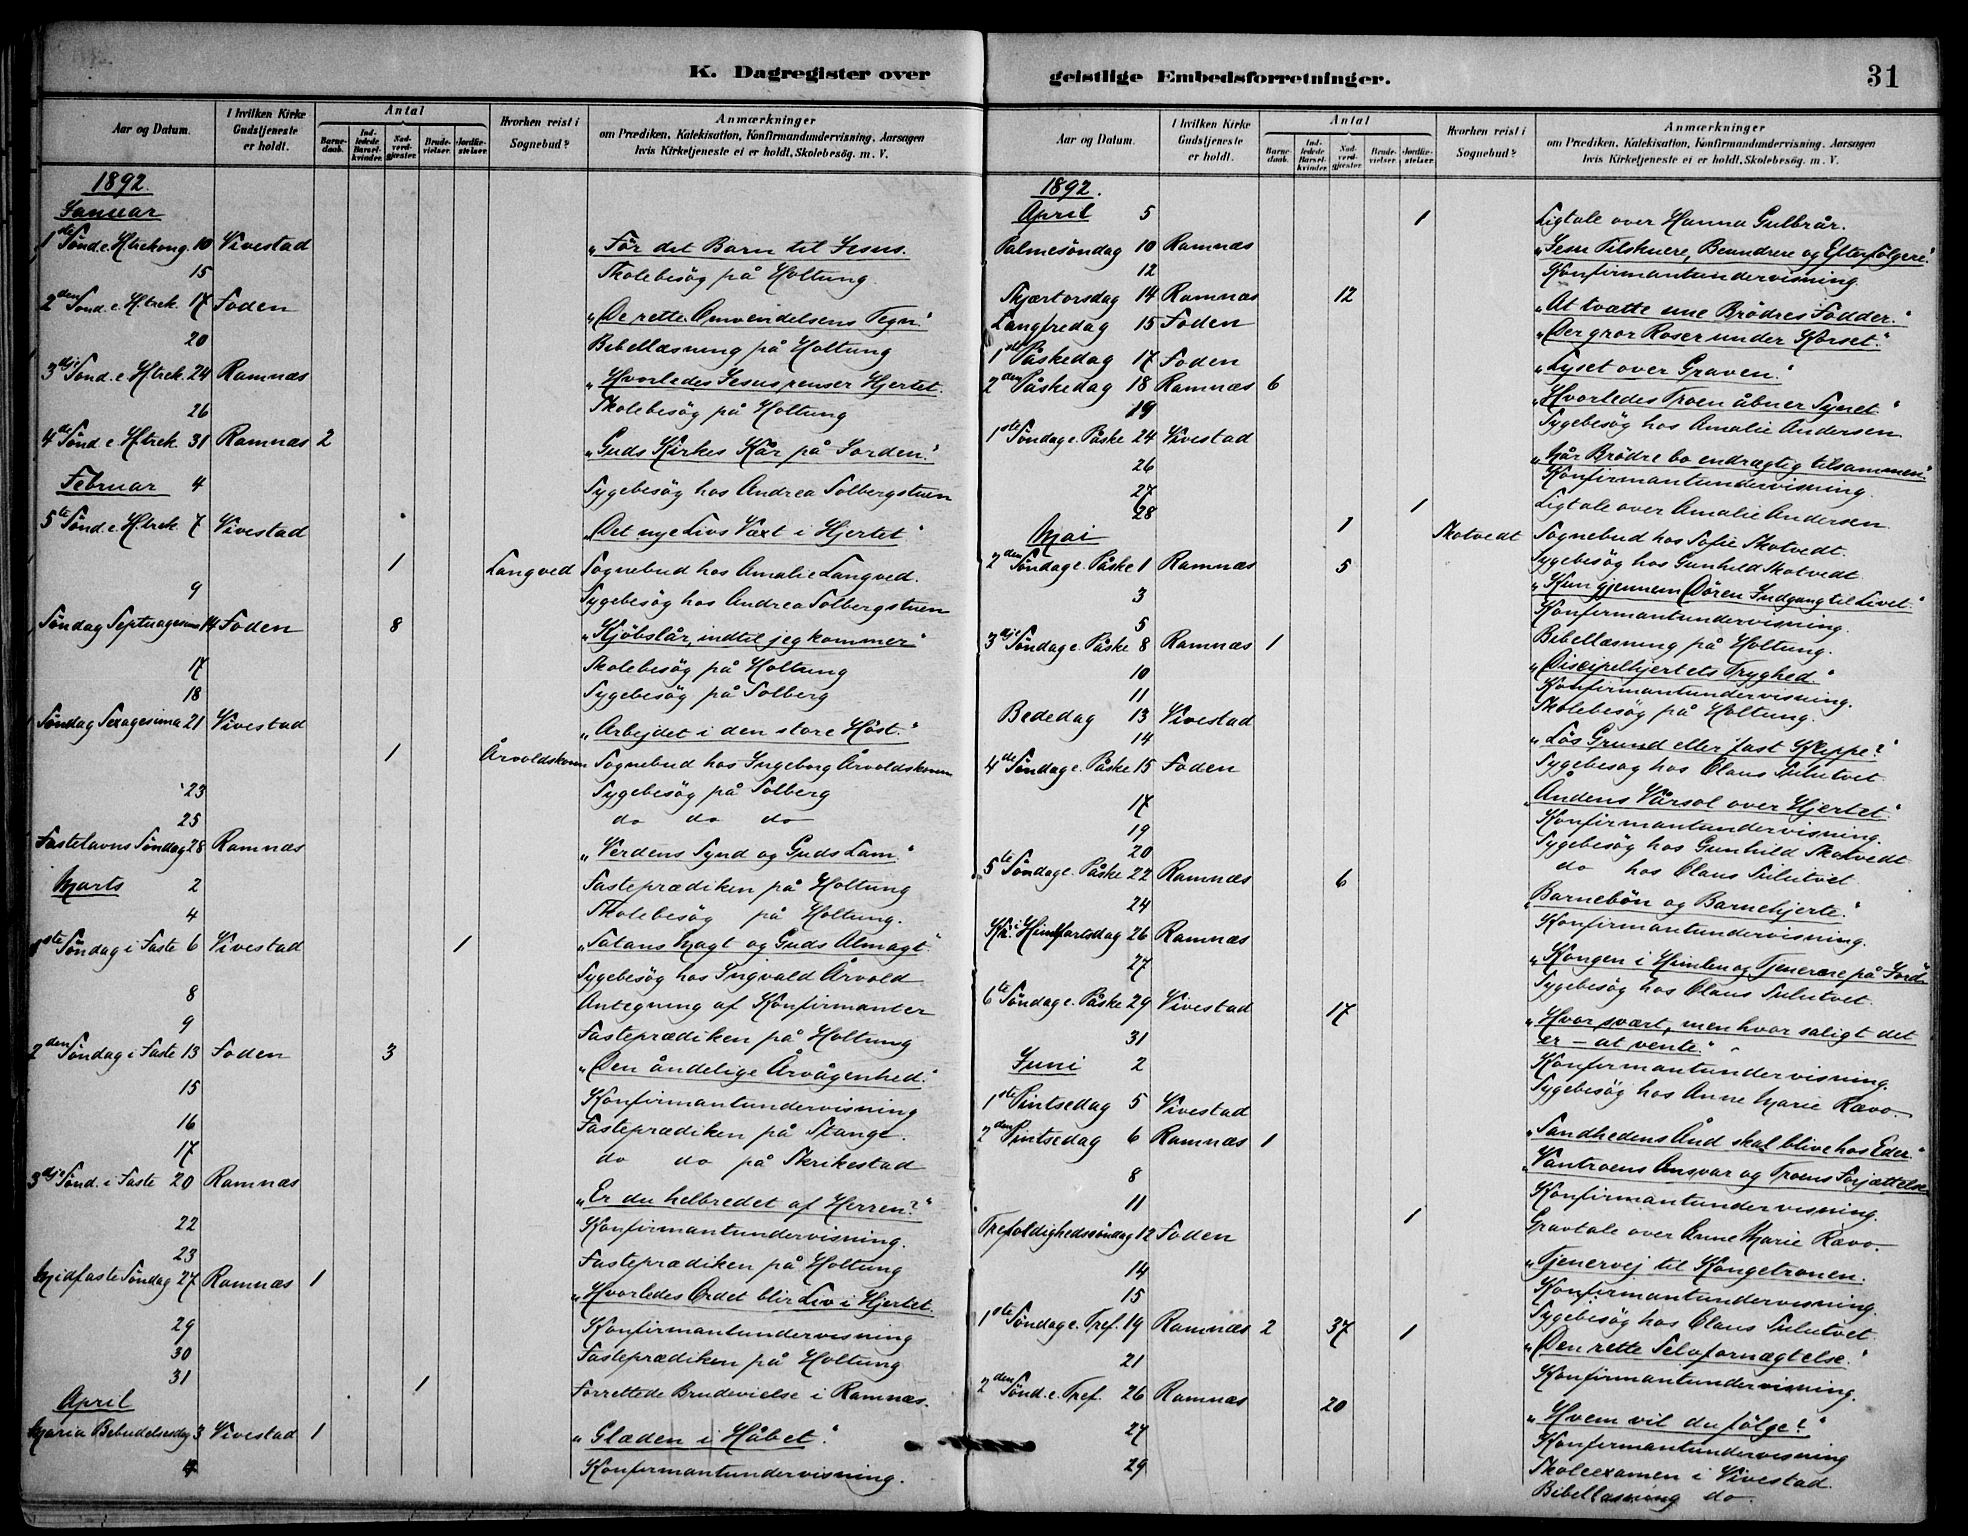 K. Dagregister over
Aar og Datum.
I hvilken Kirke Gudstjeneste er holdt.
Antal
Barne-daab.
Ind-ledede Barsel-kvinder.
Nad-verd-gjæster.
Brude-vielser.
Jordfæ-stelser.
Hvorhen reist i Sognebud?
Anmærkninger
om Prædiken, Katekisation, Konfirmandundervisning, Aarsagen
hvis Kirketjeneste ei er holdt, Skolebesøg. m. V.
1892.
Januar
1ste Sønd. e. H. trekong. 10 Vivestad „Før det Barn til Jesus.
15 Skolebesøg på Holtung.
2den Sønd. e. H. trek. 17 Foden „De rette Omvendelsens Tegn."
20 Bibellæsning på Holtung
3dje Sønd. e. H. trek. 24 Ramnæs „Hvorledes Jesus renser Hjertet.
26 Skolebesøg på Holtung
4de Sønd. e. H. trek. 31 Ramnæs 2 „Guds Kirkes Kår på Jorden."
Februar 4 Sygebesøg hos Andrea Solbergstuen
5te Sønd. e. H. trek. 7 Vivestad „Det nye Livs Væxt i Hjertet."
1 Langved Sognebud hos Amalie Langved.
9 Sygebesøg hos Andrea Solbergstuen
Søndag Septuagesima 14 Foden 8 „Kjøbslår, indtil jeg kommer"
17 Skolebesøg på Holtung
18 Sygebesøg på Solberg
Søndag Sexagesima 21 Vivestad „Arbejdet i den store Høst."
1 Årvoldskovn Sognebud hos Ingeborg Årvoldskovn
23 Sygebesøg på Solberg
25 do do do
Fastelavns Søndag 28 Ramnæs „Verdens Synd og Guds Lam."
Marts 2 Fasteprædiken på Holtung
4 Skolebesøg på Holtung.
1ste Søndag i Faste 6 Vivestad 1 „Satans Magt og Guds Almagt."
Sygebesøg hos Ingvald Årvold
8 Antegning af Konfirmanter
9 Fasteprædiken på Holtung
2den Søndag i Faste 13 Foden 3 „Den åndelige Årvågenhed."
15 Konfirmantundervisning
16 Fasteprædiken på Stange.
17 do do på Skrikestad
3dje Sønd. i Faste 20 Ramnæs „Er du helbredet af Herren?"
22 Konfirmantundervisning.
23 Fasteprædiken på Holtung
Midfaste Søndag 27 Ramnæs 1 „Hvorledes Ordet blir Liv i Hjertet.
29 Konfirmantundervisning
30 Fasteprædiken på Holtung
31 1 Forrettede Brudevielse i Ramnæs.
April
Maria Bebudelsesdag 3 Vivestad 1 „Glæden i Håbet".
Konfirmantundervisning.
geistlige Embedsforretninger. 31
Aar og Datum.
I hvilken Kirke Gudstjeneste er holdt.
Antal
Barne-daab.
Ind-ledede Barsel-kvinder.
Nad-verd-gjæster.
Brude-vielser.
Jordfæ-stelser.
Hvorhen reist i Sognebud?
Anmærkninger
om Prædiken, Katekisation, Konfirmandundervisning, Aarsagen
hvis Kirketjeneste ei er holdt, Skolebesøg. m. V.
1892.
April 5 1 Ligtale over Hanna Gulbrår.
Palmesøndag 10 Ramnæs „Jesu Tilskuere, Beundrere og Efterfølgere".
12 Konfirmantundervisning
Skjærtorsdag 14 Ramnæs 12 „At tvætte sine Brødres Fødder."
Langfredag 15 Foden „Der gror Roser under Korset."
1ste Påskedag 17 Foden „Lyset over Graven."
2den Påskedag 18 Ramnæs 6 „Hvorledes Troen åbner Synet"
19 Sygebesøg hos Amalie Andersen
1ste Søndag e. Påske 24 Vivestad „Når Brødre bo endrægtig tilsammen"
26 Konfirmantundervisning.
27
28 1 Ligtale over Amalie Andersen
Mai 1 Skotvedt Sognebud hos Sofie Skotvedt.
Sygebesøg hos Gunhild Skotvedt
2den Søndag e. Påske 1 Ramnæs 5 „Kun gjennem Døren Indgang til Livet."
3 Konfirmantundervisning.
5 Bibellæsning på Holtung.
3dje Søndag e. Påske 8 Ramnæs 1 „Discipelhjertets Tryghed"
10 Konfirmantundervisning.
11 Skolebesøg på Holtung.
Bededag 13 Vivestad „Løs Grund eller fast Klippe?"
14 Sygebesøg hos Claus
4de Søndag e. Påske 15 Foden „Åndens Vårsol over Hjertet."
17 Konfirmantundervisning.
19 Sygebesøg hos Gunhild Skotvedt
20 do hos Claus
5te Søndag e. Påske 22 Ramnæs 6 „Barnebøn og Barnehjerte."
24 Konfirmantundervisning.
Kr. Himlfartsdag 26 Ramnæs „Kongen i Himlen og Tjenerne på Jord"
27 Sygebesøg hos Claus
6te Søndag e. Påske 29 Vivestad 17 „Hvor svært, men hvor saligt det
er – at vente."
31 Konfirmantundervisning.
Juni 2 Sygebesøg hos Anne Marie Rævo.
1ste Pintsedag 5 Vivestad „Sandhedens Ånd skal blive hos Eder."
2den Pintsedag 6 Ramnæs 1 „Vantroens Ansvar og Troens Forjættelse
8 Konfirmantundervisning.
11 1 Gravtale over Anne Marie Rævo.
Trefoldighedssøndag 12 Foden „Tjenervej til Kongetronen.
14 Konfirmantundervisning.
15 Sygebesøg hos Claus
1ste Søndag e. Tref. 19 Ramnæs 2 37 1 „Den rette Selvfornægtelse."
21 Konfirmantundervisning.
2den Sønd. e. Tref. 26 Ramnæs 20 „Hvem vil du følge?"
27 Konfirmantundervisning
29 Skoleexamen i Vivestad.
Bibellæsning do.